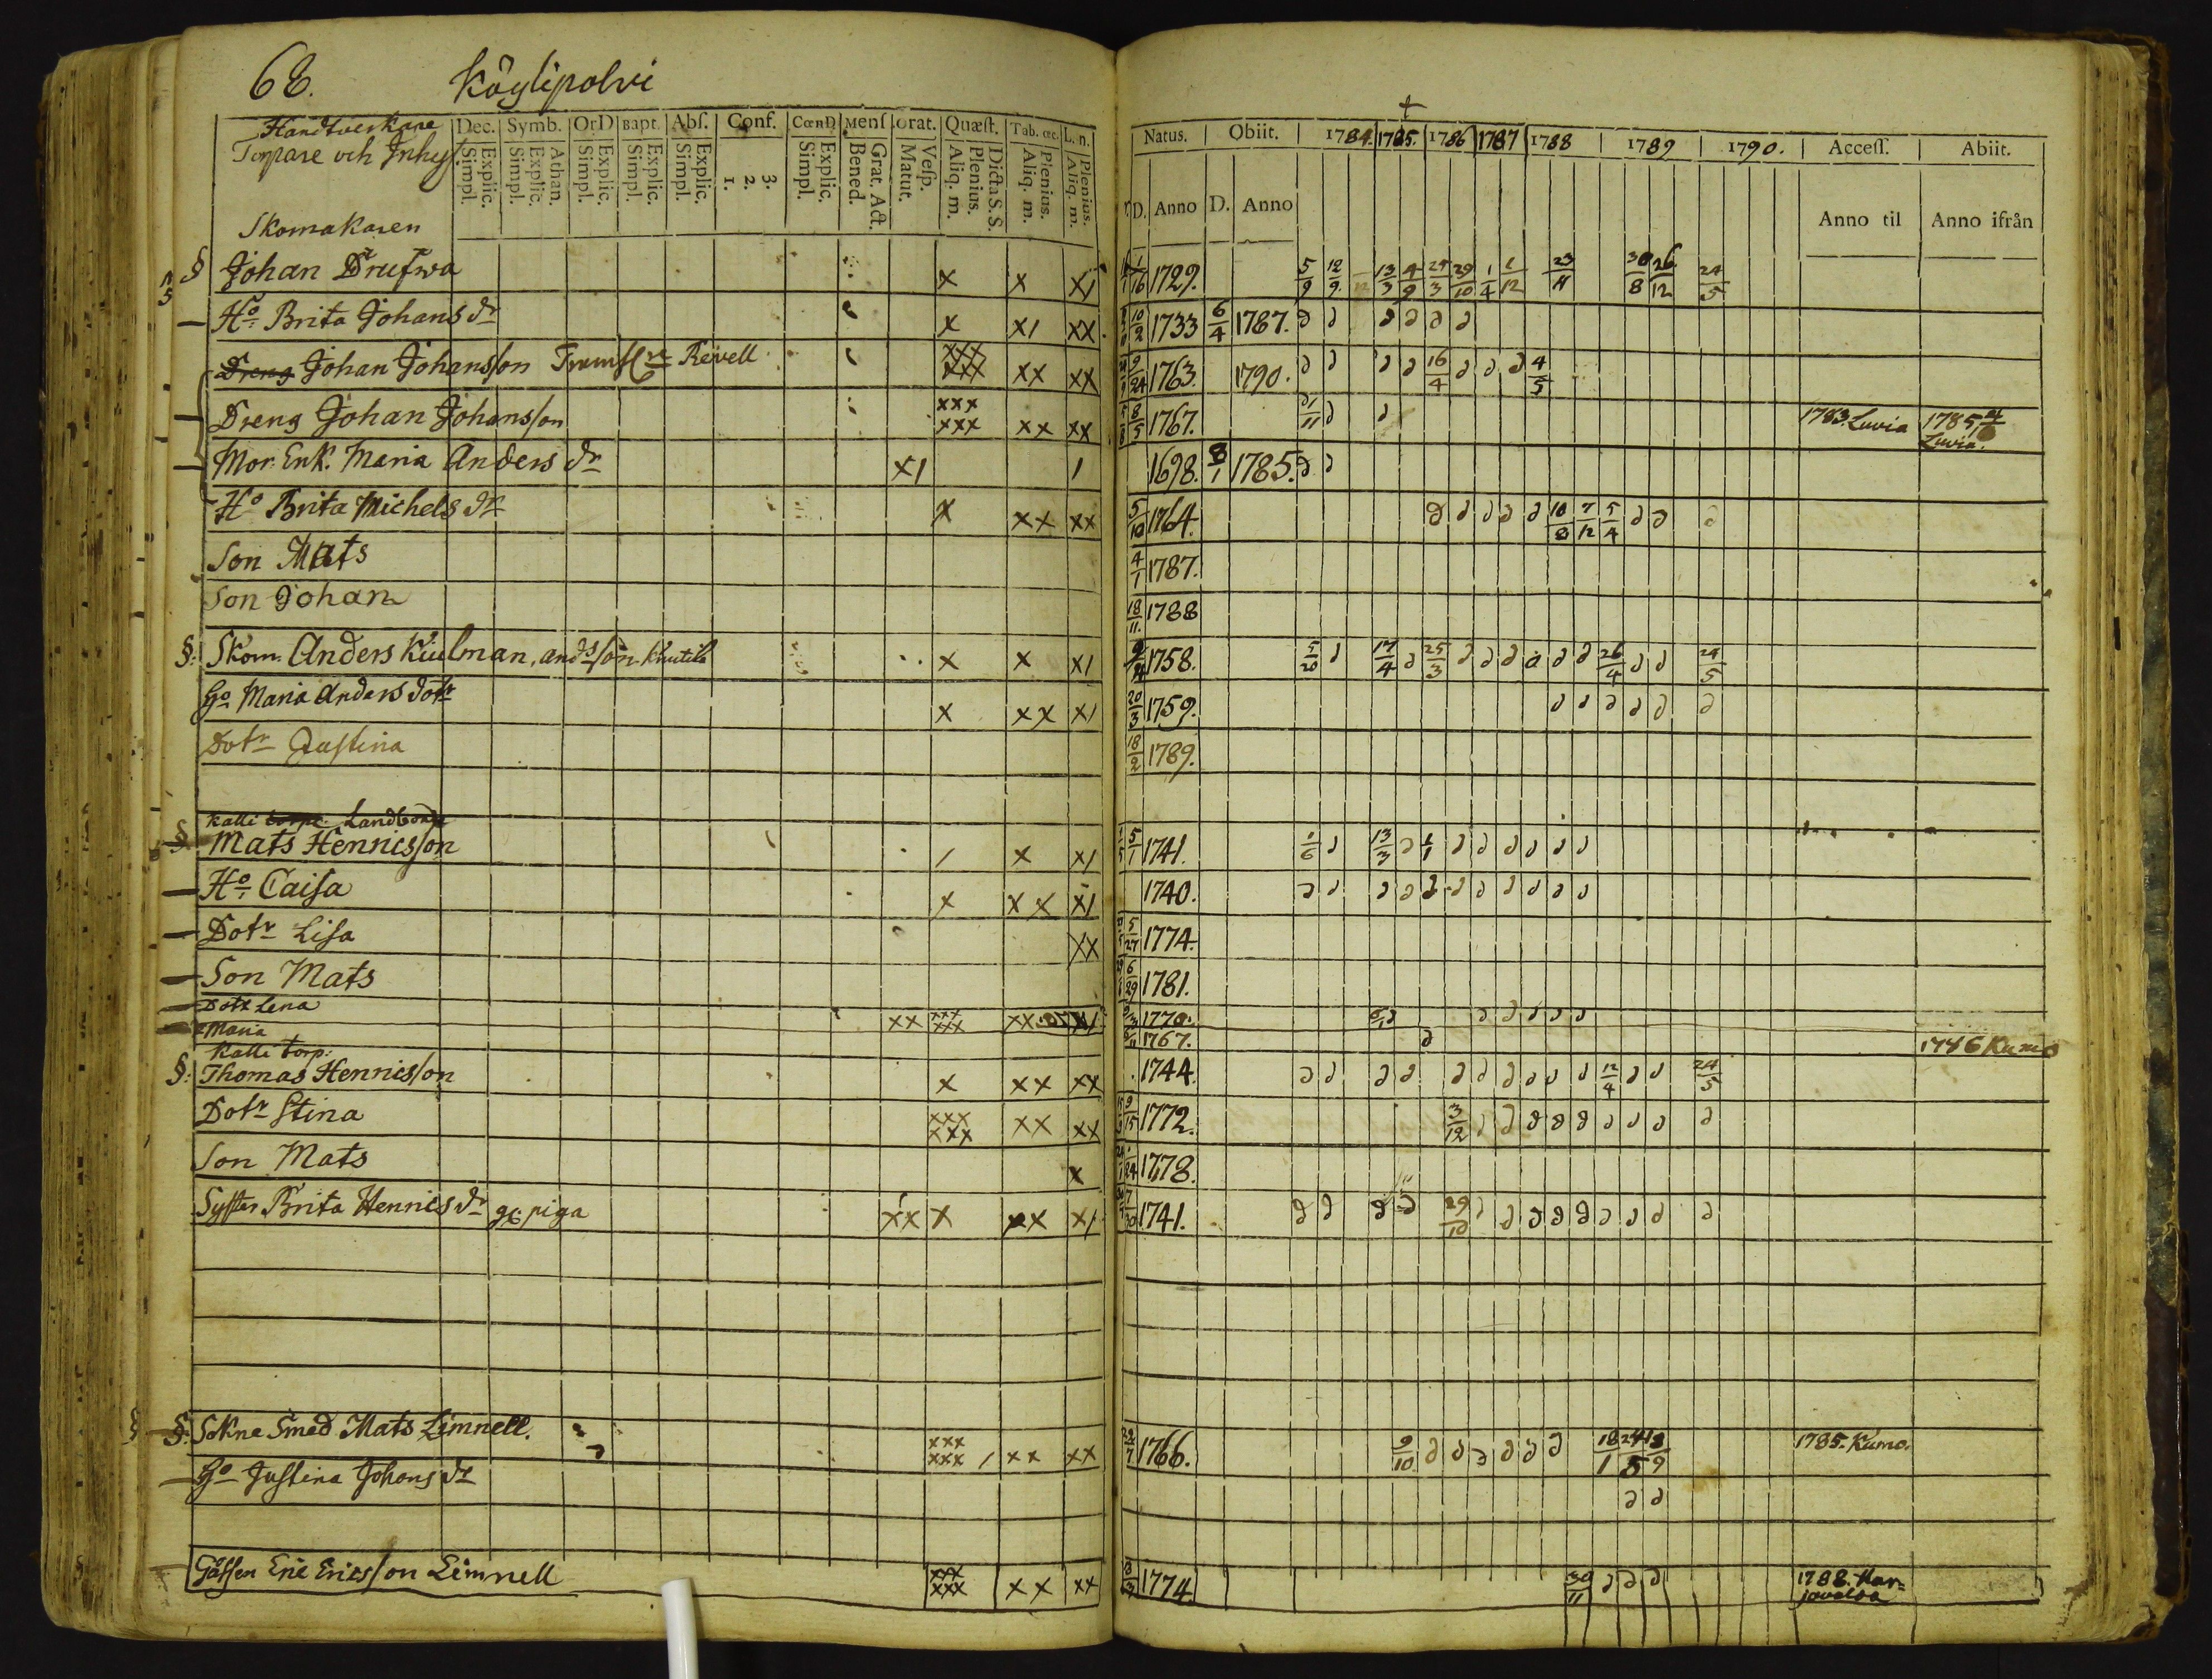 68. Köylipolvi
Handtverkare
Torpare och Inhys.
Dec. Symb. OrD Bapt. Abſ. Conf. CœnD Menſ Orat. Quæſt. Tab. œc. L. n.
Explic. Simpl. Athan. Explic. Simpl. Explic. Simpl. Explic. Simpl. Explic. Simpl. 3. 2. 1. Explic. Simpl. Grat. Act. Bened. Veſp. Matut. Dicta S. S. Plenius. Aliq. m. Plenius. Aliq. m. Plenius. Aliq. m.
Natus. Obiit. 1784. 1785. 1786 1787 1788 1789 1790. Acceſſ. Abiit.
D. Anno D. Anno Anno til Anno ifrån
Skomakaren
§ Johan Drufwa x x x/ 1729. 5/9 12/9 13/3 4/9 29/10 1/4 23/11 30/8 26/12 24/5
Ho: Brita Johans dr x x/ xx 10/2 1733 6/4 1787.
Dreng Johan Johansson Revell xxx xxx xx xx 9/24 1763. 1790. 16/4 4/5
Dreng Johan Johansson xxx xxx xx xx 8/5 1767. 1783. Luvia 1785 Luvia.
Mor Enk. Maria Anders dr x/ / 1698. 8/1 1785.
Ho Brita Michels dr x xx xx 5/10 1764. 10/8 7/12 5/4
Son Mats 4/1 1787.
Son Johan 18/11. 1788
§: Skom. Anders Kiulman, ands son Knutila x x x/ 1758. 5/20 17/4 25/3 26/4 24/5
Ho Maria Anders dotr x xx x/ 20/3 1759.
Dotr Justina 18/2 1789.
Kalli torp. Landbonde
§. Mats Hennicsson / x x/ 5/1 1741. 1/6 13/3 1/1
Ho: Caisa x xx x/ 1740.
Dotr Lisa xx 5/27 1774.
Son Mats 6/29 1781.
Dotr Lena xx xxx xxx xx x/ 1770.
Maria 1767. 1786 Kumo
Kalli torp.
§: Thomas Hennicsson x xx xx 1744. 12/4 24/5
Dotr Stina xxx xxx xx xx 9/15 1772. 3/12
Son Mats x 1778.
Syster Brita Hennics dr piga xx x xx x/ 1741. 29/10
§: Sokne Smed Mats Limnell. xxx xxx / xx xx 1766. 9/10 18/1 24/5 18/9 1785. Kumo.
Ho Justina Johans dr
Gässen Eric Ericsson Limnell xxx xxx xx xx 1774. 30/11 1788. Harjavalda